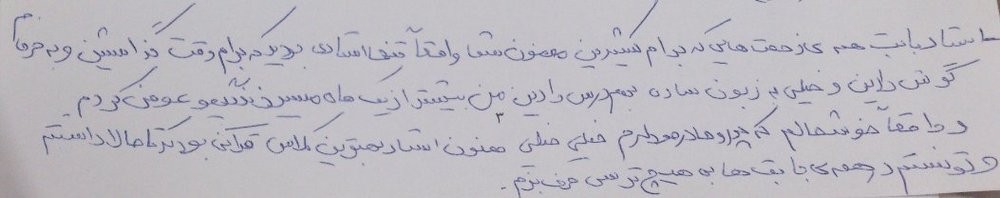 استاد بابت همه ی زحمت هایی که برام کشیدین ممنون شما واقعاً تنها استادی بودید که برام وقت گذاشتین و به حرفام
گوش دادین و خیلی به زبون ساده بهم درس دادین من بیشتر از یک ماه مسیر زندگیمو عوض کردم
و واقعاً خوشحالم که پدر و مادرمو دارم خیلی خیلی ممنون استاد بهترین کلاس قرآنی بود که تا حالا داشتم
و تونستم در همه ی جا بقیه ها به هیچ ترسی حرف بزنم.